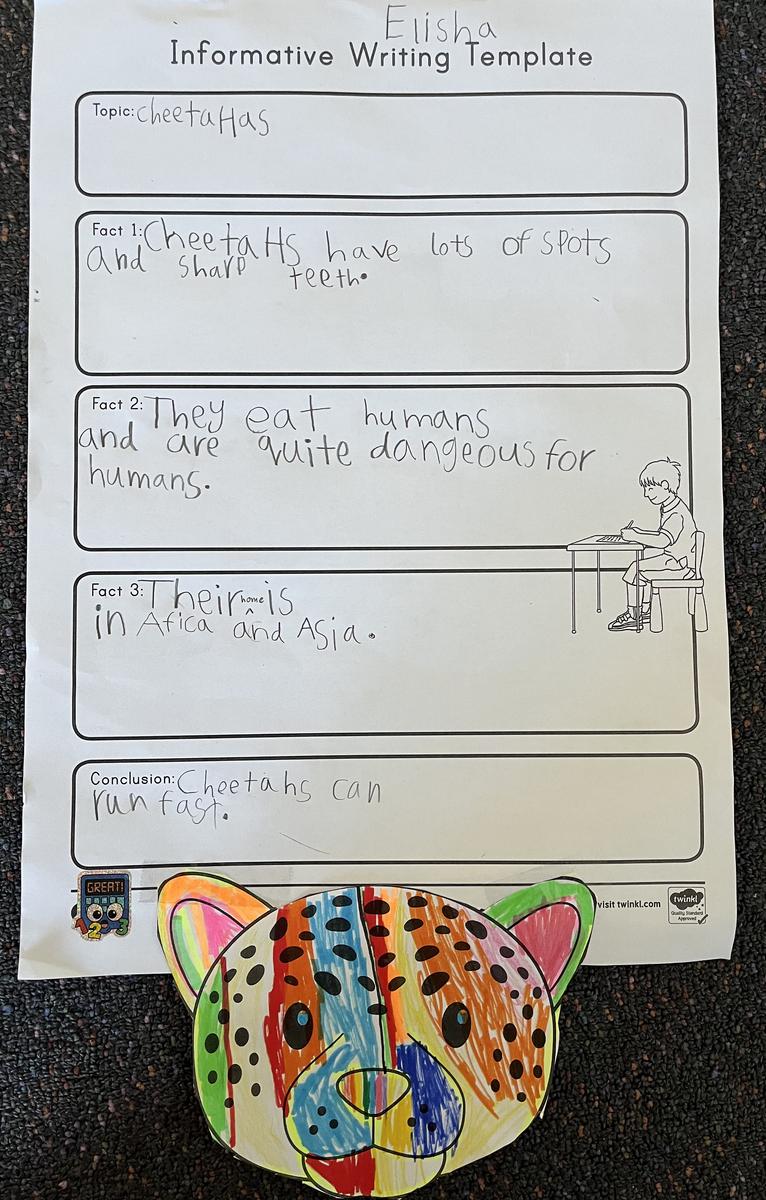 Elisha
Informative Writing Template
Topic: cheetaHas
Fact 1: CheetaHs have lots of spots
and sharp teeth.
Fact 2: They eat humans
and are quite dangeous for
humans.
Fact 3: Their home is
in Africa and Asia.
Conclusion: Cheetahs can
run fast.
GREAT!
123
visit twinkl.com
twinkl
Quality Standard
Approved